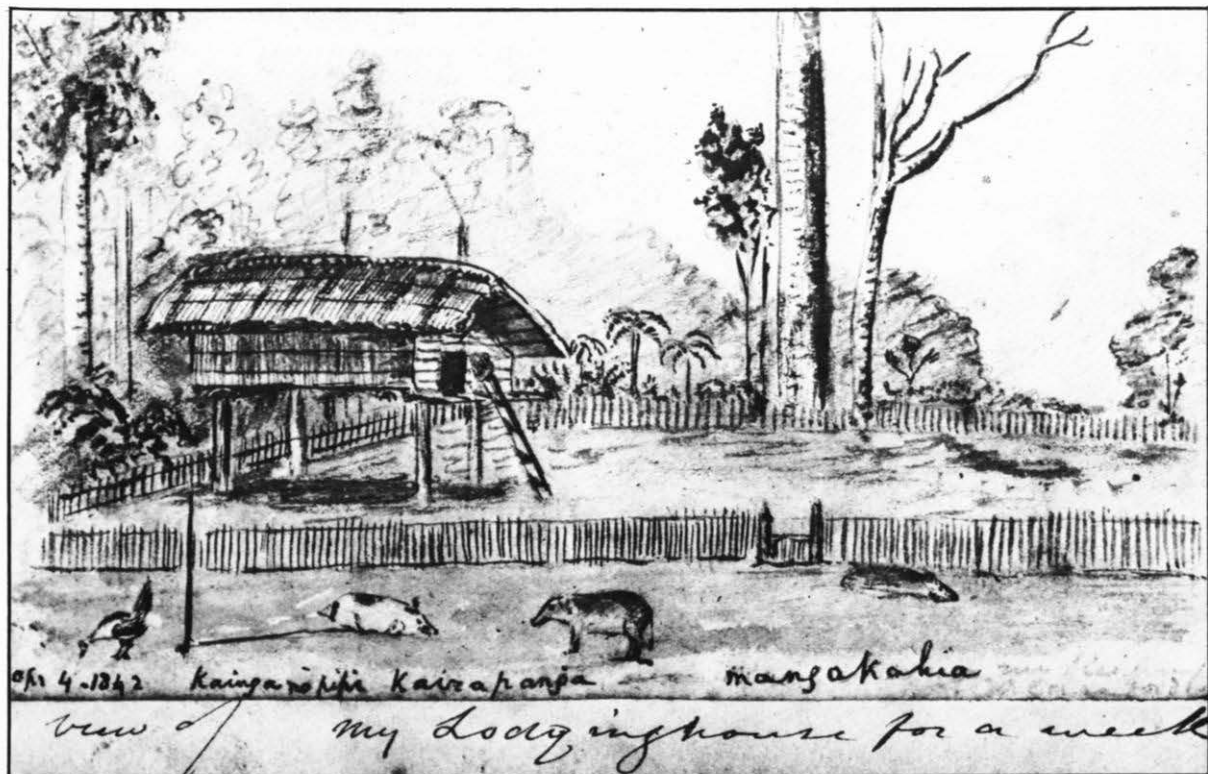 Apr 4 - 1842 Kainga Kairapanga mangakahia
view of my Lodginghouse for a week